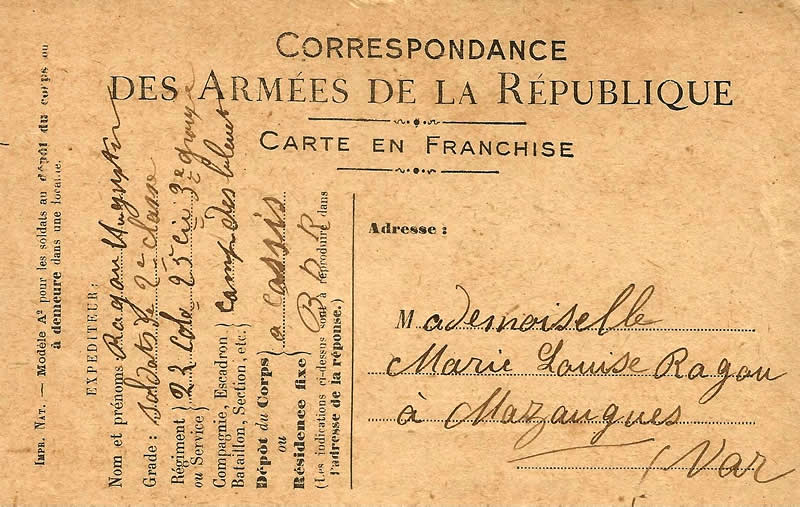 CORRESPONDANCE
DES ARMÉES DE LA RÉPUBLIQUE
CARTE EN FRANCHISE
IMPR. NAT. — Modèle A² pour les soldats au dépôt du corps ou
à demeure dans une localité.
EXPÉDITEUR:
Nom et prénoms Ragou Augustin
Grade : soldats de 2e classe
Régiment
ou Service
22 Cola 25 Cie 3e groupe
Compagnie, Escadron
Bataillon, Section, etc.
Camp des
Dépôt du Corps
ou
Résidence fixe
à Cassis
B D R
(Les indications ci-dessus sont à reproduire dans
l'adresse de la réponse.)
Adresse :
Mademoiselle
Marie Louise Ragou
à Mazaugues
Var